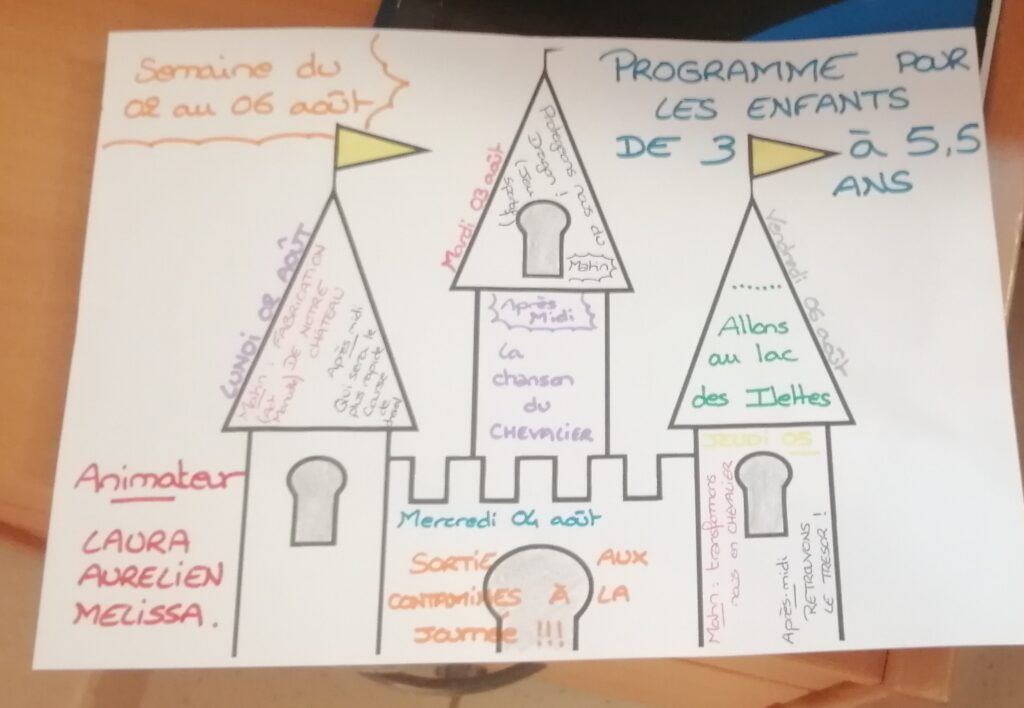 Semaine du
02 au 06 août
PROGRAMME POUR
LES ENFANTS
DE 3 à 5,5
ANS
LUNDI 02 AOÛT
Matin : FABRICATION
(Act Manuelle) DE NOTRE
CHÂTEAU
Après-midi
Qui sera le
plus rapide
Course
de
Mardi 03 août
Matin
Protégeons nous du
Après
Midi
La
chanson
du
CHEVALIER
Mercredi 04 août
SORTIE AUX
CONTAMINES À LA
Journée !!!
JEUDI 05
Matin : transformons
nous en CHEVALIER
Après-midi
RETROUVONS
LE TRESOR !
Vendredi 06 août
.......
Allons
au lac
des Ilettes
Animateur
LAURA
AURELIEN
MELISSA.